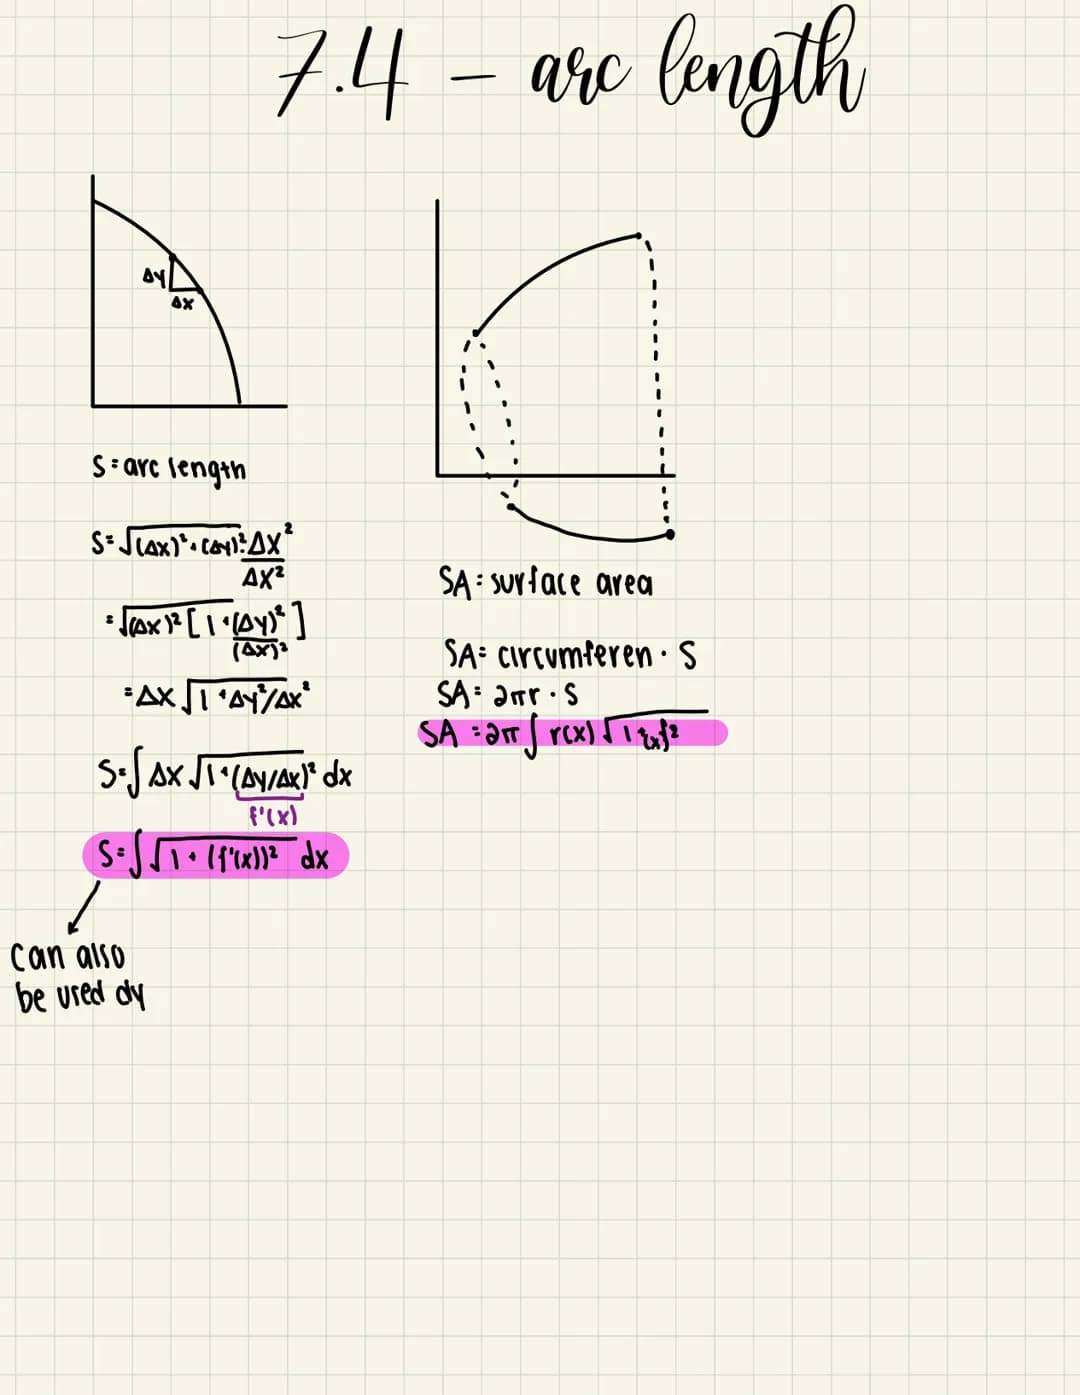 7.4 - arc length
Δy
Δx
S = arc length
S = √(Δx)² + (Δy)² · Δx²/Δx²
= √(Δx)² [1 + (Δy)²/(Δx)²]
= Δx √1 + Δy²/Δx²
S = ∫ Δx √1 + (Δy/Δx)² dx
f'(x)
S = ∫ √1 + (f'(x))² dx
can also
be used dy
SA = surface area
SA = circumferen · S
SA = 2πr · S
SA = 2π ∫ r(x) √1